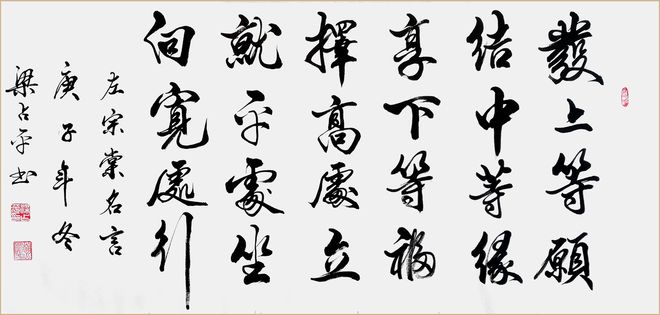 發上等願
結中等緣
享下等福
擇高處立
就平處坐
向寬處行
左宗棠名言
庚子年冬
梁占平书